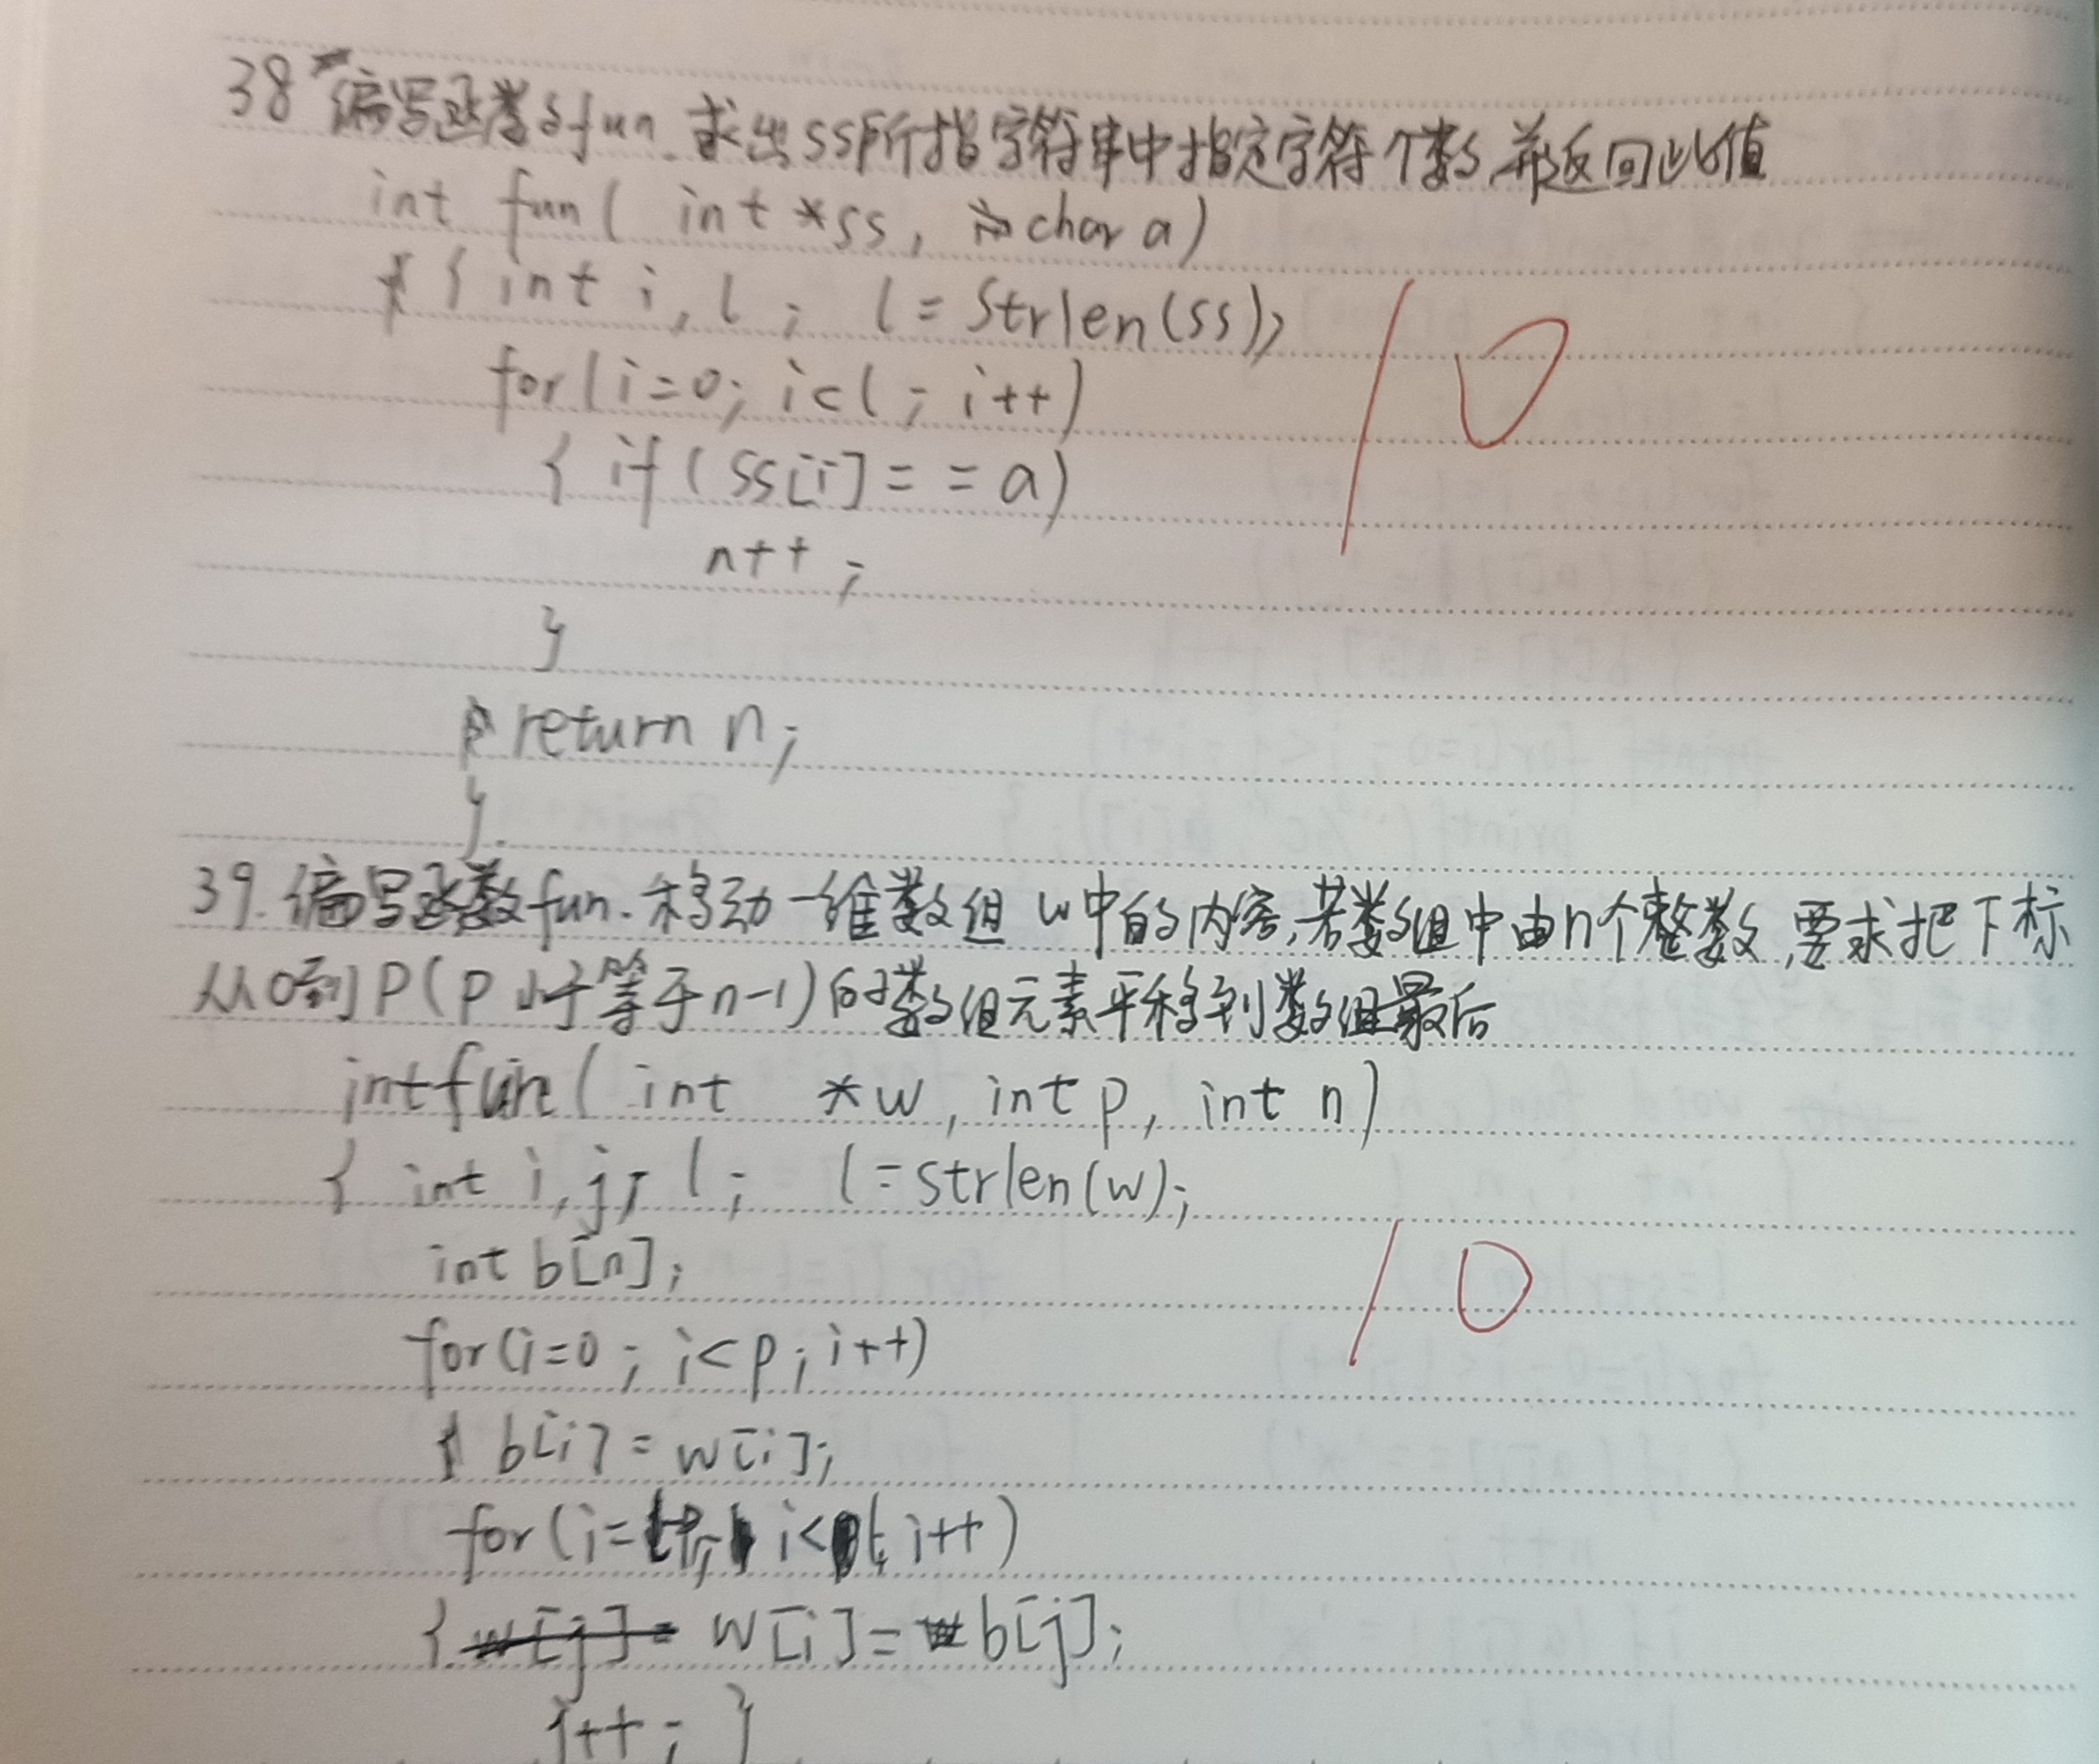 38 编写函数fun.求出ss所指字符串中指定字符个数,并返回此值
int fun( int *ss, char a)
{ int i, l; l = Strlen(ss);
for(i=0; i<l; i++)
{ if(ss[i]= =a)
n++;
}
return n;
}.
10
39.编写函数fun.移动一维数组 w中的内容,若数组中由n个整数,要求把下标
从0到P(p小于等于n-1)的数组元素平移到数组最后
int fun( int *w, int p, int n)
{ int i, j, l; l=strlen(w);
int b[n];
10
for(i=0; i<p; i++)
b[i] = w[i];
for(i= i< i++)
{ w[i]= b[j];
j++; }